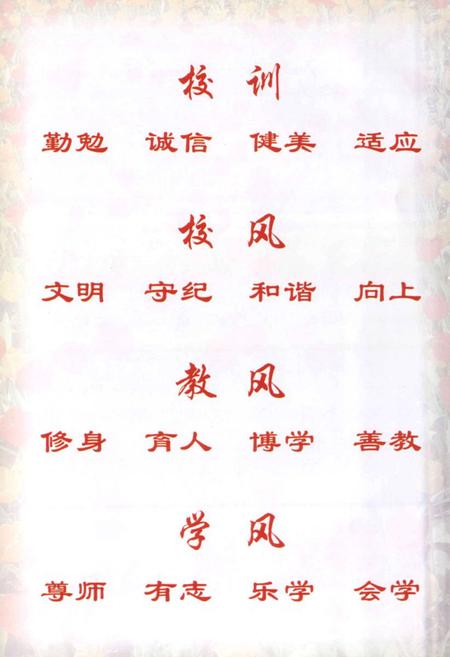 校 训
勤勉 诚信 健美 适应
校 风
文明 守纪 和谐 向上
教 风
修身 育人 博学 善教
学 风
尊师 有志 乐学 会学